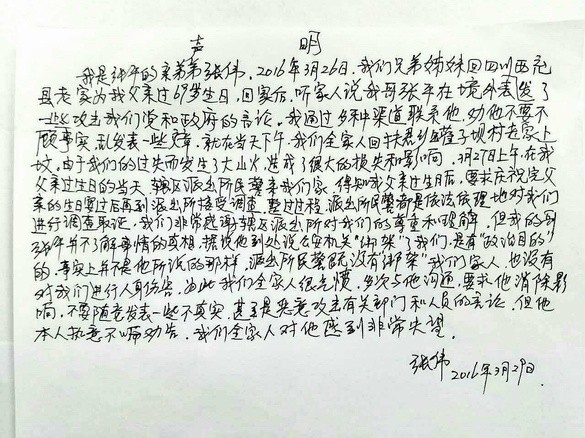 声 明
我是张平的亲弟弟张伟。2016年3月26日,我们兄弟姊妹回四川西充
县老家为我父亲过69岁生日,回家后,听家人说我哥张平在境外发了
一些攻击我们党和政府的言论。我通过多种渠道联系他,劝他不要不
顾事实,乱发表一些文章,就在当天下午,我们全家人回扶君乡 坝村老家上
坟,由于我们的过失而发生了大山火,造成了很大的损失和影响。3月27日上午,在我
父亲过生日的当天,辖区派出所民警来我们家,得知我父亲过生日后,要求庆祝完父
亲的生日宴过后再到派出所接受调查,整过过程,派出所民警都是依法依理地对我们
进行调查取证,我们非常感谢辖区派出所对我们的尊重和理解。但我的哥
张平并不了解事情的真相,据说他到处说公安机关"绑架"了我们,是有"政治目的"
的,事实上并不是他所说的那样,派出所民警既没有"绑架"我们家人,也没有
对我们进行人身伤害,为此我们全家人很气愤,多次与他沟通,要求他消除影
响,不要随意发表一些不真实,甚至是恶意攻击有关部门和人员的言论,但他
本人执意不听劝告,我们全家人对他感到非常失望。
张伟 2016年3月29日.